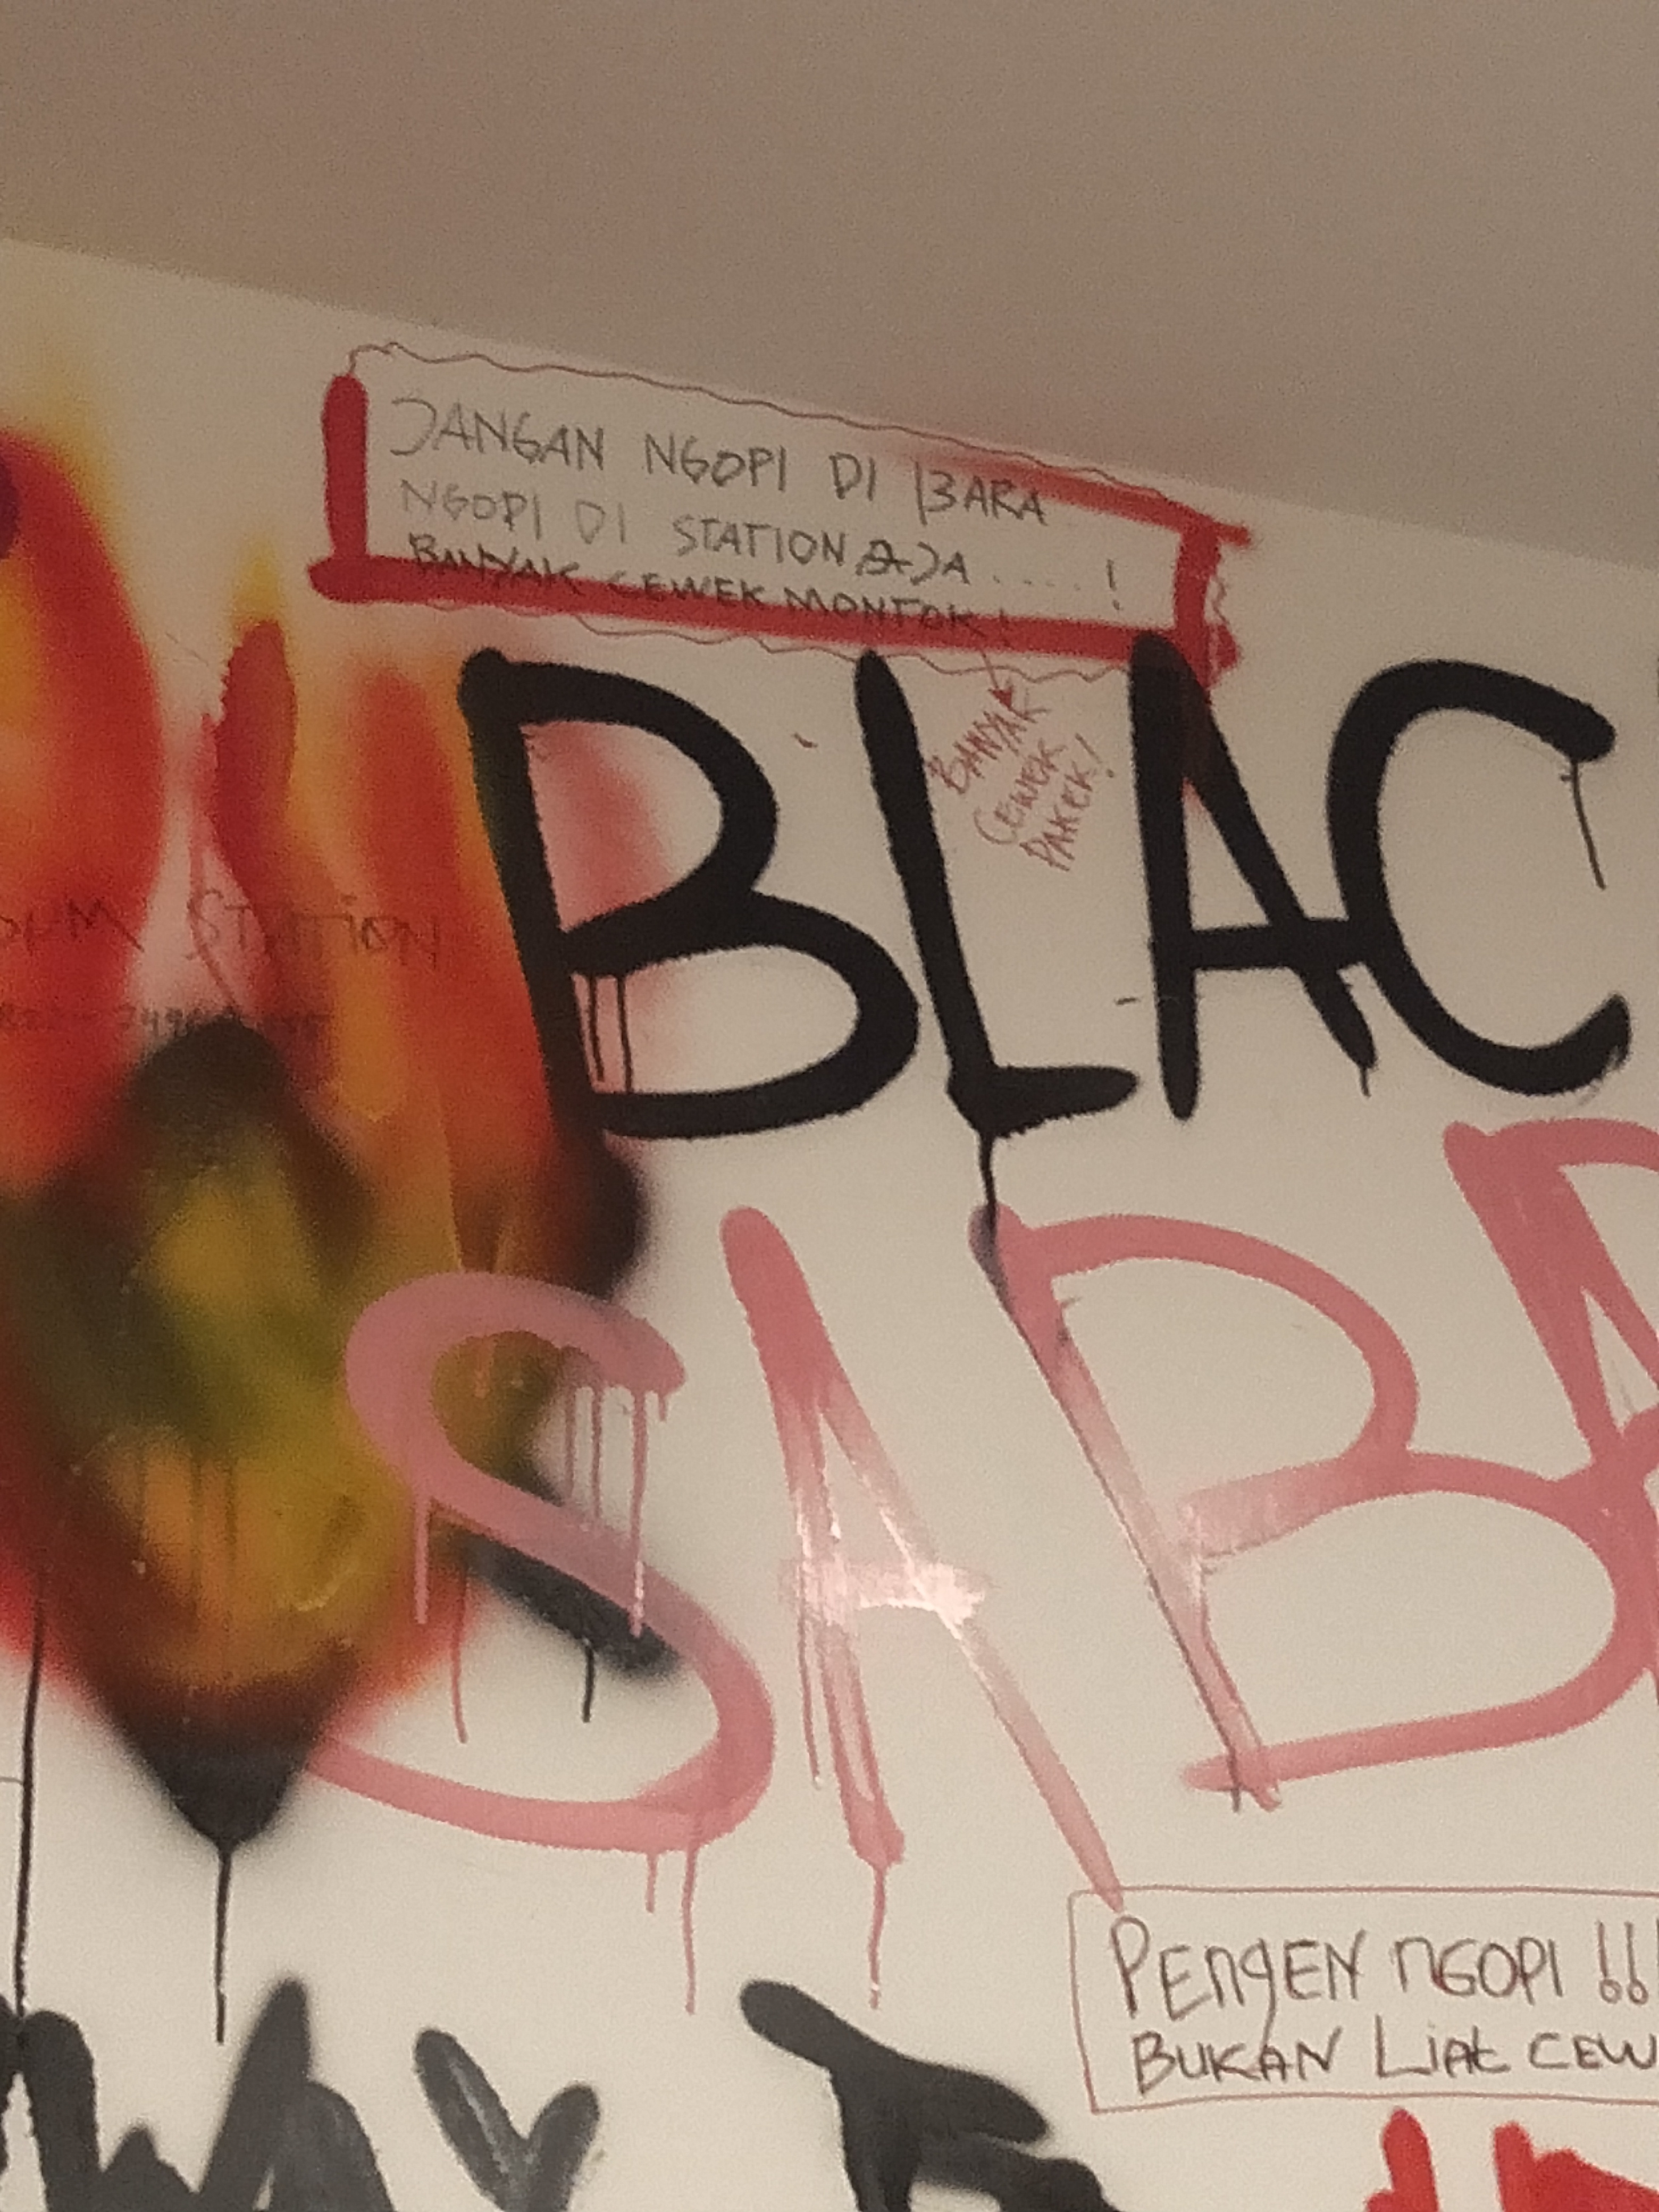 JANGAN NGOPI DI BARA
NGOPI DI STATION AJA.....!
BANYAK CEWEK MONTOK!
BANYAK
CEWEK
PAKEK!
STATION
BLAC
SABA
PENGEN NGOPI !!!
BUKAN LIAT CEW